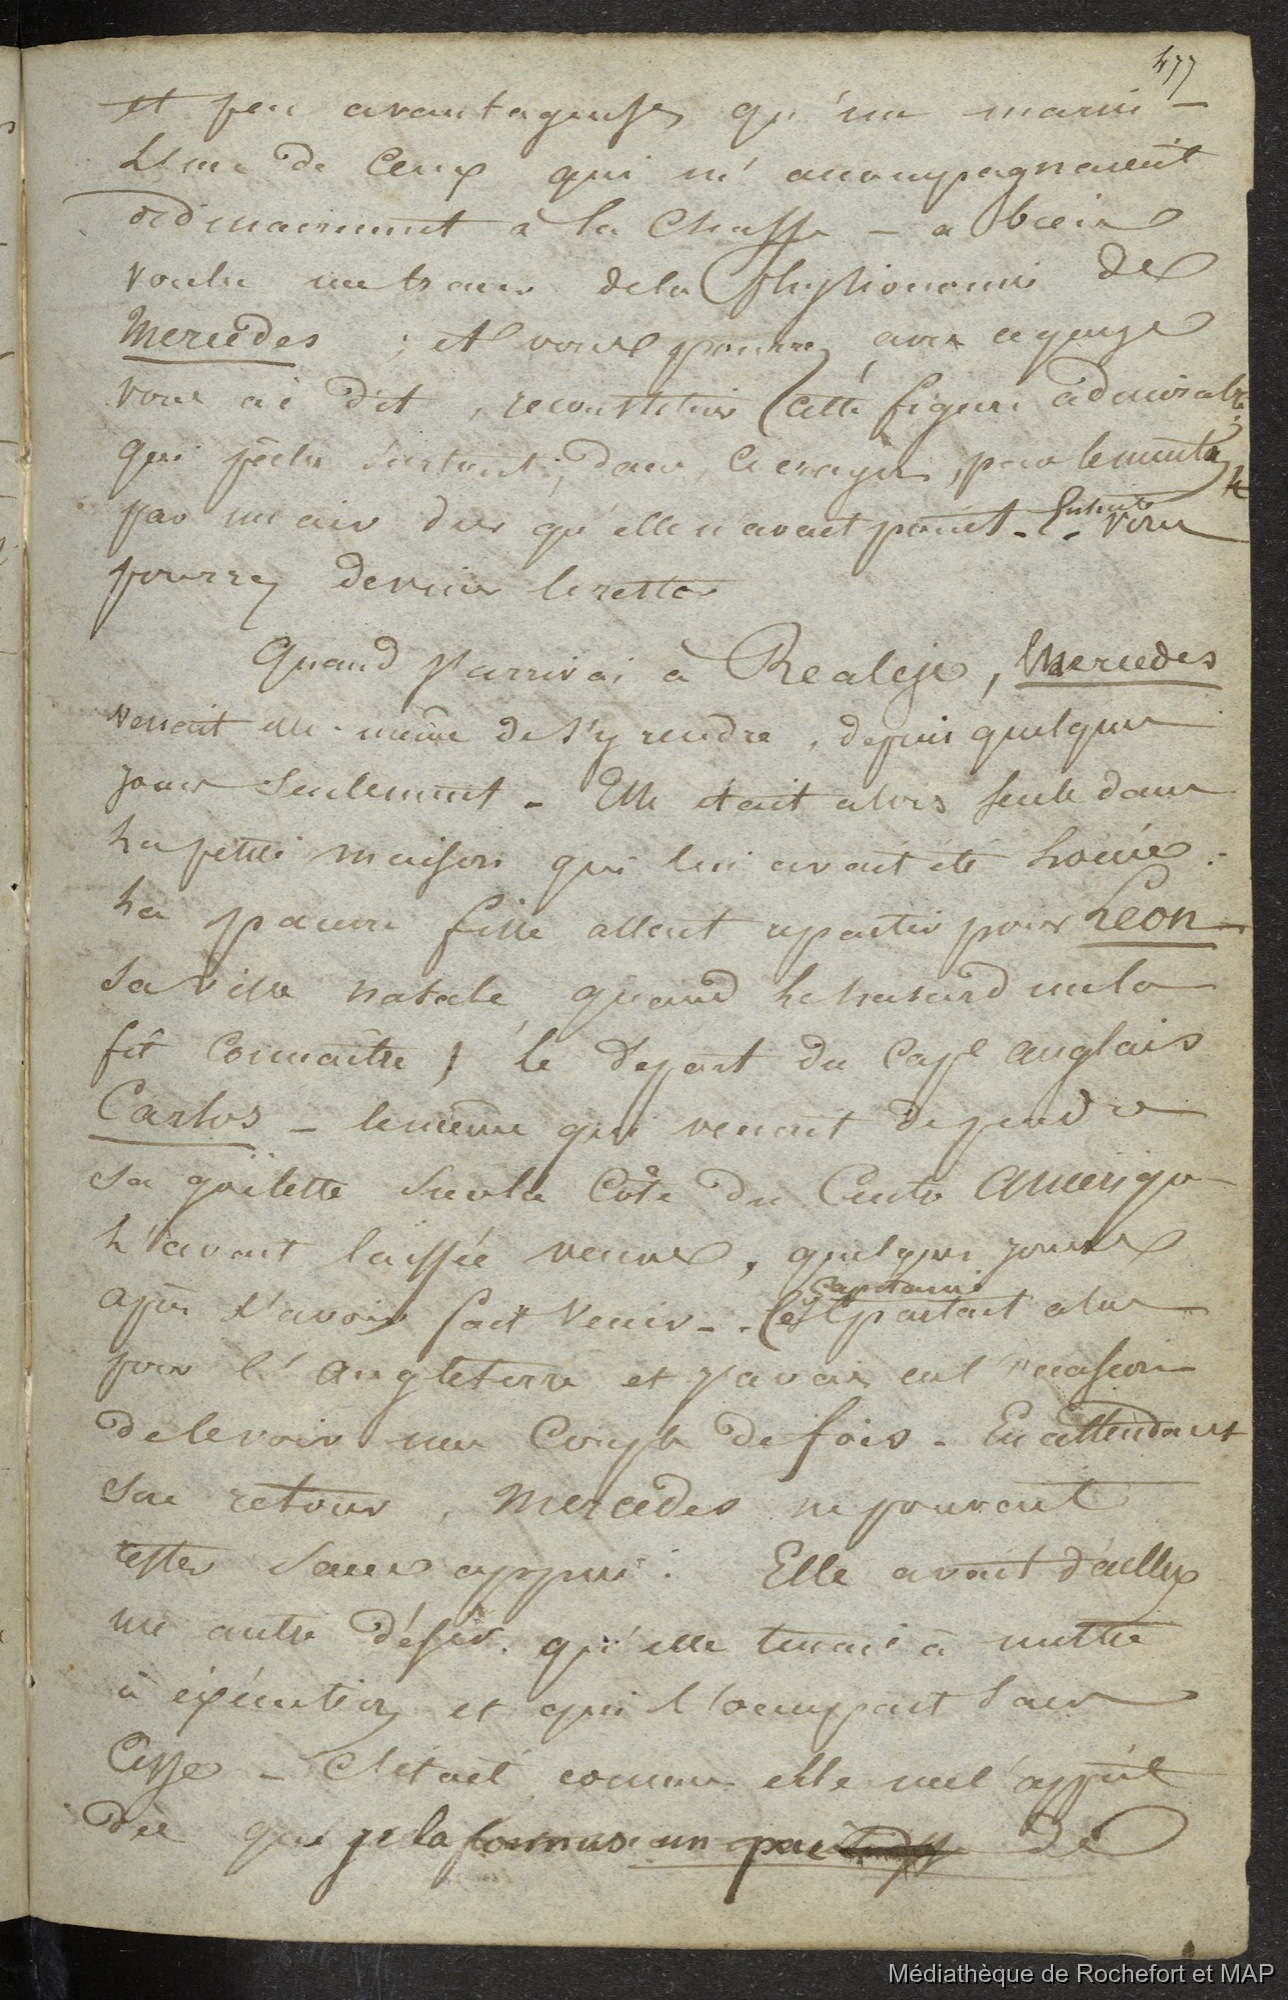 477
et peu avantageuse, qu'un marin –
L'un de ceux qui m'accompagnaient
ordinairement à la Chasse – a bien
voulu me tracer de la Physionomie de
Mercedes ; et vous pourrez avec ce que je
vous ai dit, reconstituer cette figure admirable
qui pèche surtout, dans ce crayon, par le menton,
par un air dur qu'elle n'avait point. – Ensuite vous
pourrez deviner le reste
Quand j'arrivai à Realejo, Mercedes
venait elle-même de s'y rendre, depuis quelques
jours seulement – Elle était alors seule dans
la petite maison qui lui avait été louée.
La pauvre fille allait repartir pour Léon –
sa ville natale quand le hasard me la
fit connaître ; le départ du Cap.e anglais
Carlos – le même qui venait de perdre
sa goëlette sur la Côte du Centre Amérique –
l'avait laissée veuve, quelques jours
après l'avoir fait venir – . Ce Capitaine partait alors
pour l'Angleterre et j'avais eu l'occasion
de le voir une couple de fois – En attendant
son retour, Mercedes ne pouvait
rester sans appui. Elle avait d'ailleurs
un autre désir qu'elle tenait à mettre
à éxécution et qui l'occupait sans
Cesse – C'était comme elle me l'apprit
dès que je la connus un peu de
Médiathèque de Rochefort et MAP